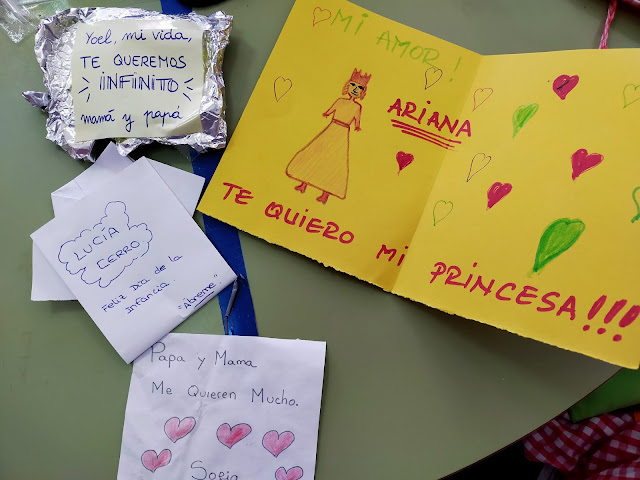 Yoel, mi vida,
TE QUEREMOS
INFINITO
mamá y papá
¡MI AMOR!
ARIANA
TE QUIERO MI
PRINCESA!!!
LUCÍA
CERRO
Feliz Día de la
Infancia
"Ábreme"
Papa y Mama
Me Quieren Mucho.
Sofia